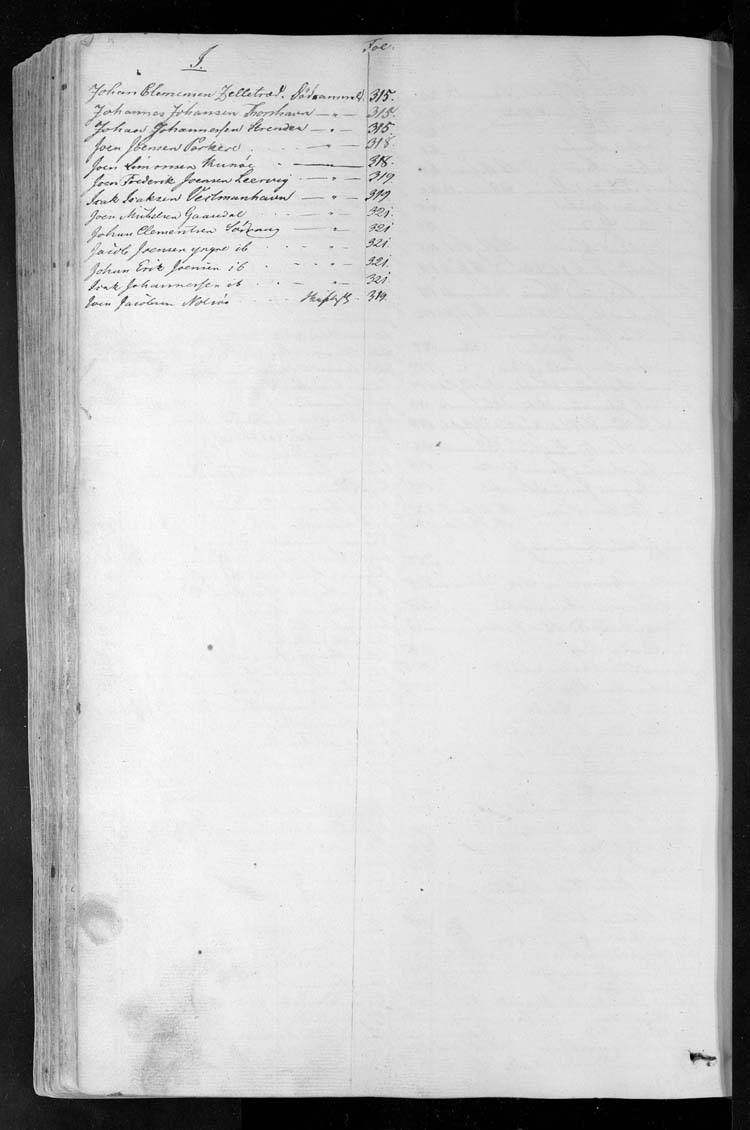 I.
Fol.
Johan Clementsen Zelletræd. Dødsanmeld. 315.
Johannes Johansen Thorshavn — " — 315.
Johan Johannessen Strender — " — 315.
Joen Joensen Porkere — " — 318.
Joen Simonsen Kunøe " — 318.
Joen Frederik Joensen Leervig — " — 319
Isak Isaksen Vestmanhavn — " — 319
Joen Michelsen Gaasedal — " — 321.
Johan Clementsen — " — 321
Jacob Joensen yngre ib — " — 321.
Johan Erik Joensen ib — " — 321.
Isak Johannessen ib — " — 321.
Joen Jacobsen Nolsøe Skifte 319.